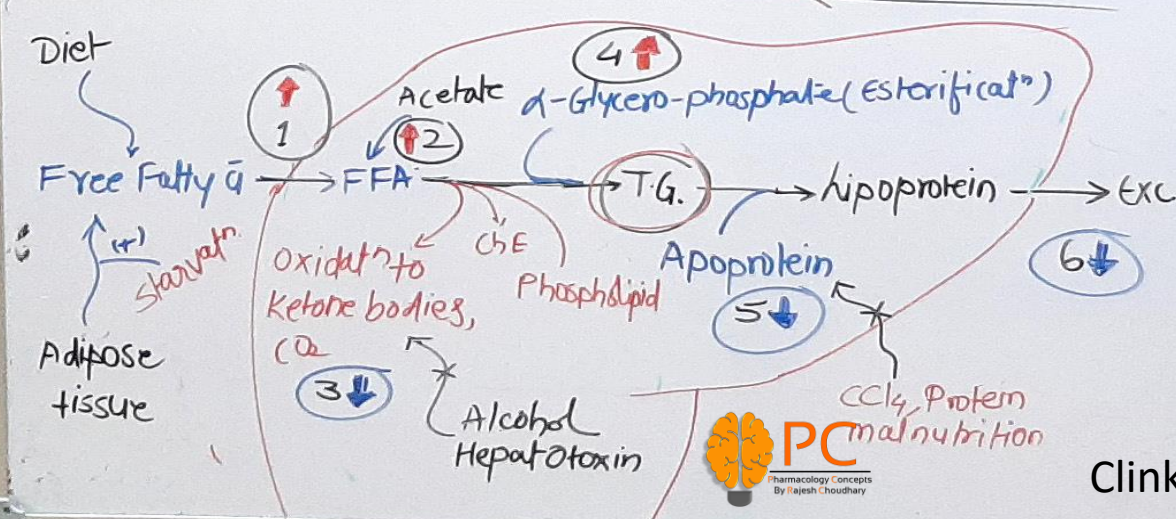 Diet
1
Acetate
2
4
α-Glycero-phosphate (Esterificatⁿ)
Free Fatty ā
FFA
T.G.
Lipoprotein
Exc
(+)
starvatⁿ
Oxidatⁿ to
Ketone bodies,
CO₂
3
ChE
Phospholipid
Apoprotein
5
6
Adipose
tissue
Alcohol
Hepatotoxin
CCl₄, Protein
malnutrition
PC
Pharmacology Concepts
By Rajesh Choudhary
Clink